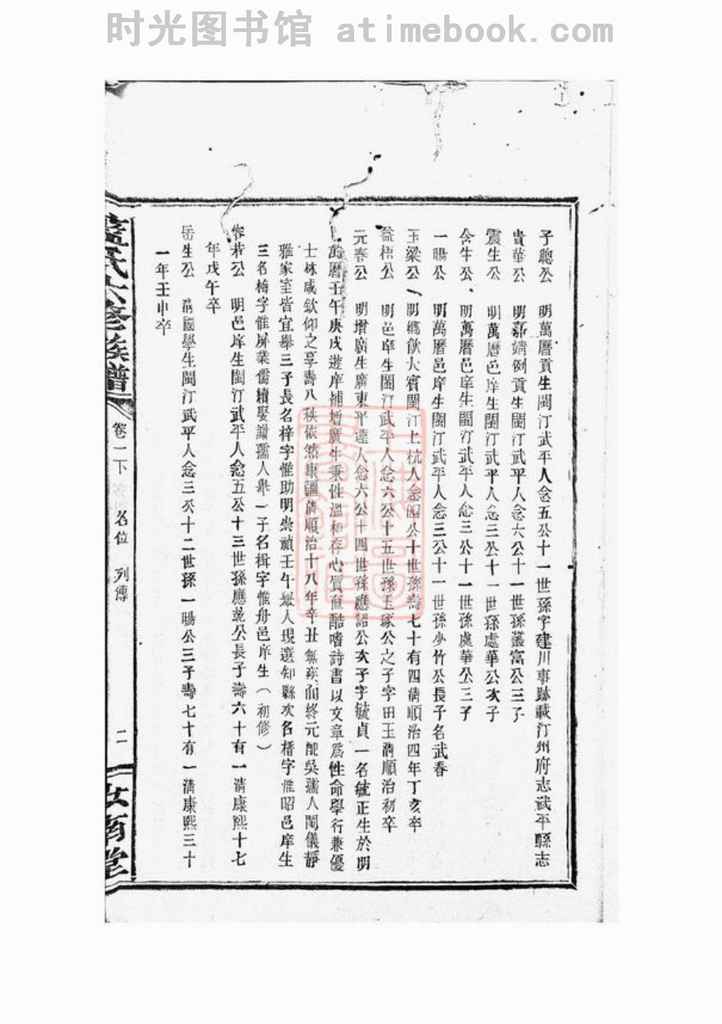 时光图书馆 atimebook.com
子聰公 明萬曆貢生閩汀武平人念五公十一世孫字建川事跡載汀州府志武平縣志
貴華公 明嘉靖例貢生閩汀武平人念六公十一世孫叢富公三子
震生公 明萬曆邑庠生閩汀武平人念三公十一世孫處華公次子
含生公 明萬曆邑庠生閩汀武平人念三公十一世孫處華公三子
一暘公 明萬曆邑庠生閩汀武平人念三公十一世孫少竹公長子名武春
玉梁公 明鄉飲大賓閩汀上杭人念四公十世孫壽七十有四清順治四年丁亥卒
益梧公 明邑庠生閩汀武平人念六公十五世孫玉琢公之子字田玉清順治初卒
元春公 明增廣生廣東平遠人念六公十四世孫應詔公次子字毓貞一名毓正生於明
萬曆壬午庚戌遊庠補增廣生秉性溫和存心質直酷嗜詩書以文章爲性命學行兼優
士林咸欽仰之享壽八秩依然康疆清順治十八年辛丑無疾而終元配吳孺人閫儀靜
雅家室皆宜舉三子長名梓字惟助明崇禎壬午舉人現選知縣次名楷字惟昭邑庠生
三名椅字惟屏業儒續娶謝孺人舉一子名楫字惟舟邑庠生（初修）
公 明邑庠生閩汀武平人念五公十三世孫應乾公長子壽六十有一清康熙十七
年戊午卒
岳生公 清國學生閩汀武平人念三公十二世孫一暘公三子壽七十有一清康熙三十
一年壬申卒
藍氏六修族譜 卷一下 名位 列傳 二 汝南堂